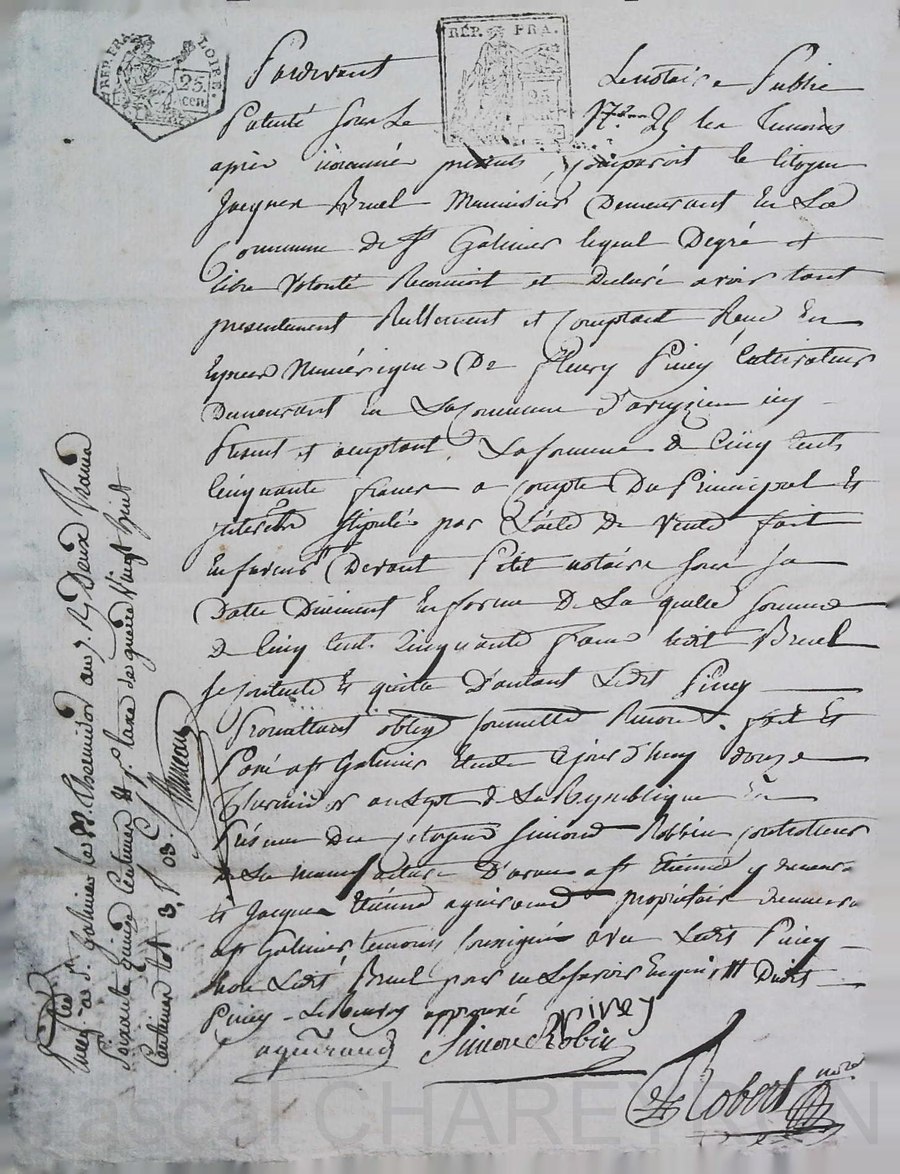 RÉP. FRA. LOIRE.
25. cen.
RÉP. FRA.
25
Pardevant Le notaire Public
Patenté sous Le 17 les temoins
après nommés presents, comparoit le Citoyen
Jacques Bruel Menuisier Demeurant En La
Commune De St Galmier lequel Degré et
libre Volonté Reconnoit et Declare avoir tant
presentement Rellement et Comptant Reçu En
Espèces Numériques De Fleury Piney Cultivateur
Demeurant En La Commune D'aveyzieu icy
Présent et acceptant, La somme De Cinq cents
Cinquante francs a Compte Du Principal Et
interets stipulés par L'acte De Vente fait
En faveur Devant Petit notaire sous sa
Date Duement En forme De La quelle somme
De Cinq Cent Cinquante francs ledit Bruel
se contente Et quitte D'autant Ledit Piney
Promettant oblig. soumett. Renon. fait Et
Passé a St Galmier Etude Ce jourd'huy douze
Thermidor an Sept De La République En
Présence Du Citoyen Simond Robbin controleur
De La manufacture D'armes a St Etienne y demeurt
Et Jacques Etienne aguiraud proprietaire demeurt
a St Galmier temoins soussignés avec Ledit Piney
non Ledit Bruel pour ne Le savoir Enquis Dudit
Piney Le Renvoy approuvé Piney
aguiraud Simond Robin
Robert nore
Enreg. a St Galmier le 22 Thermidor an 7. Deux francs
Soixante quinze Centimes Et pr taxe de guerre Vingt huit
Centimes tot. 3. f 03 C.
Pascal CHAREYRON